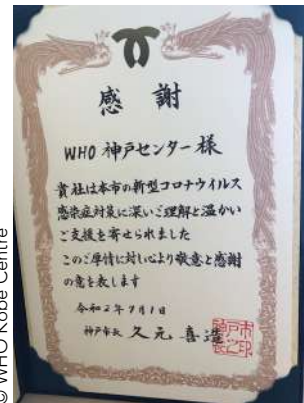 感謝
WHO 神戸センター様
貴社は本市の新型コロナウイルス
感染症対策に深いご理解と温かい
ご支援を寄せられました
このご厚情に対し心より敬意と感謝
の意を表します
令和2年9月1日
神戸市長 久元喜造
© WHO Kobe Centre